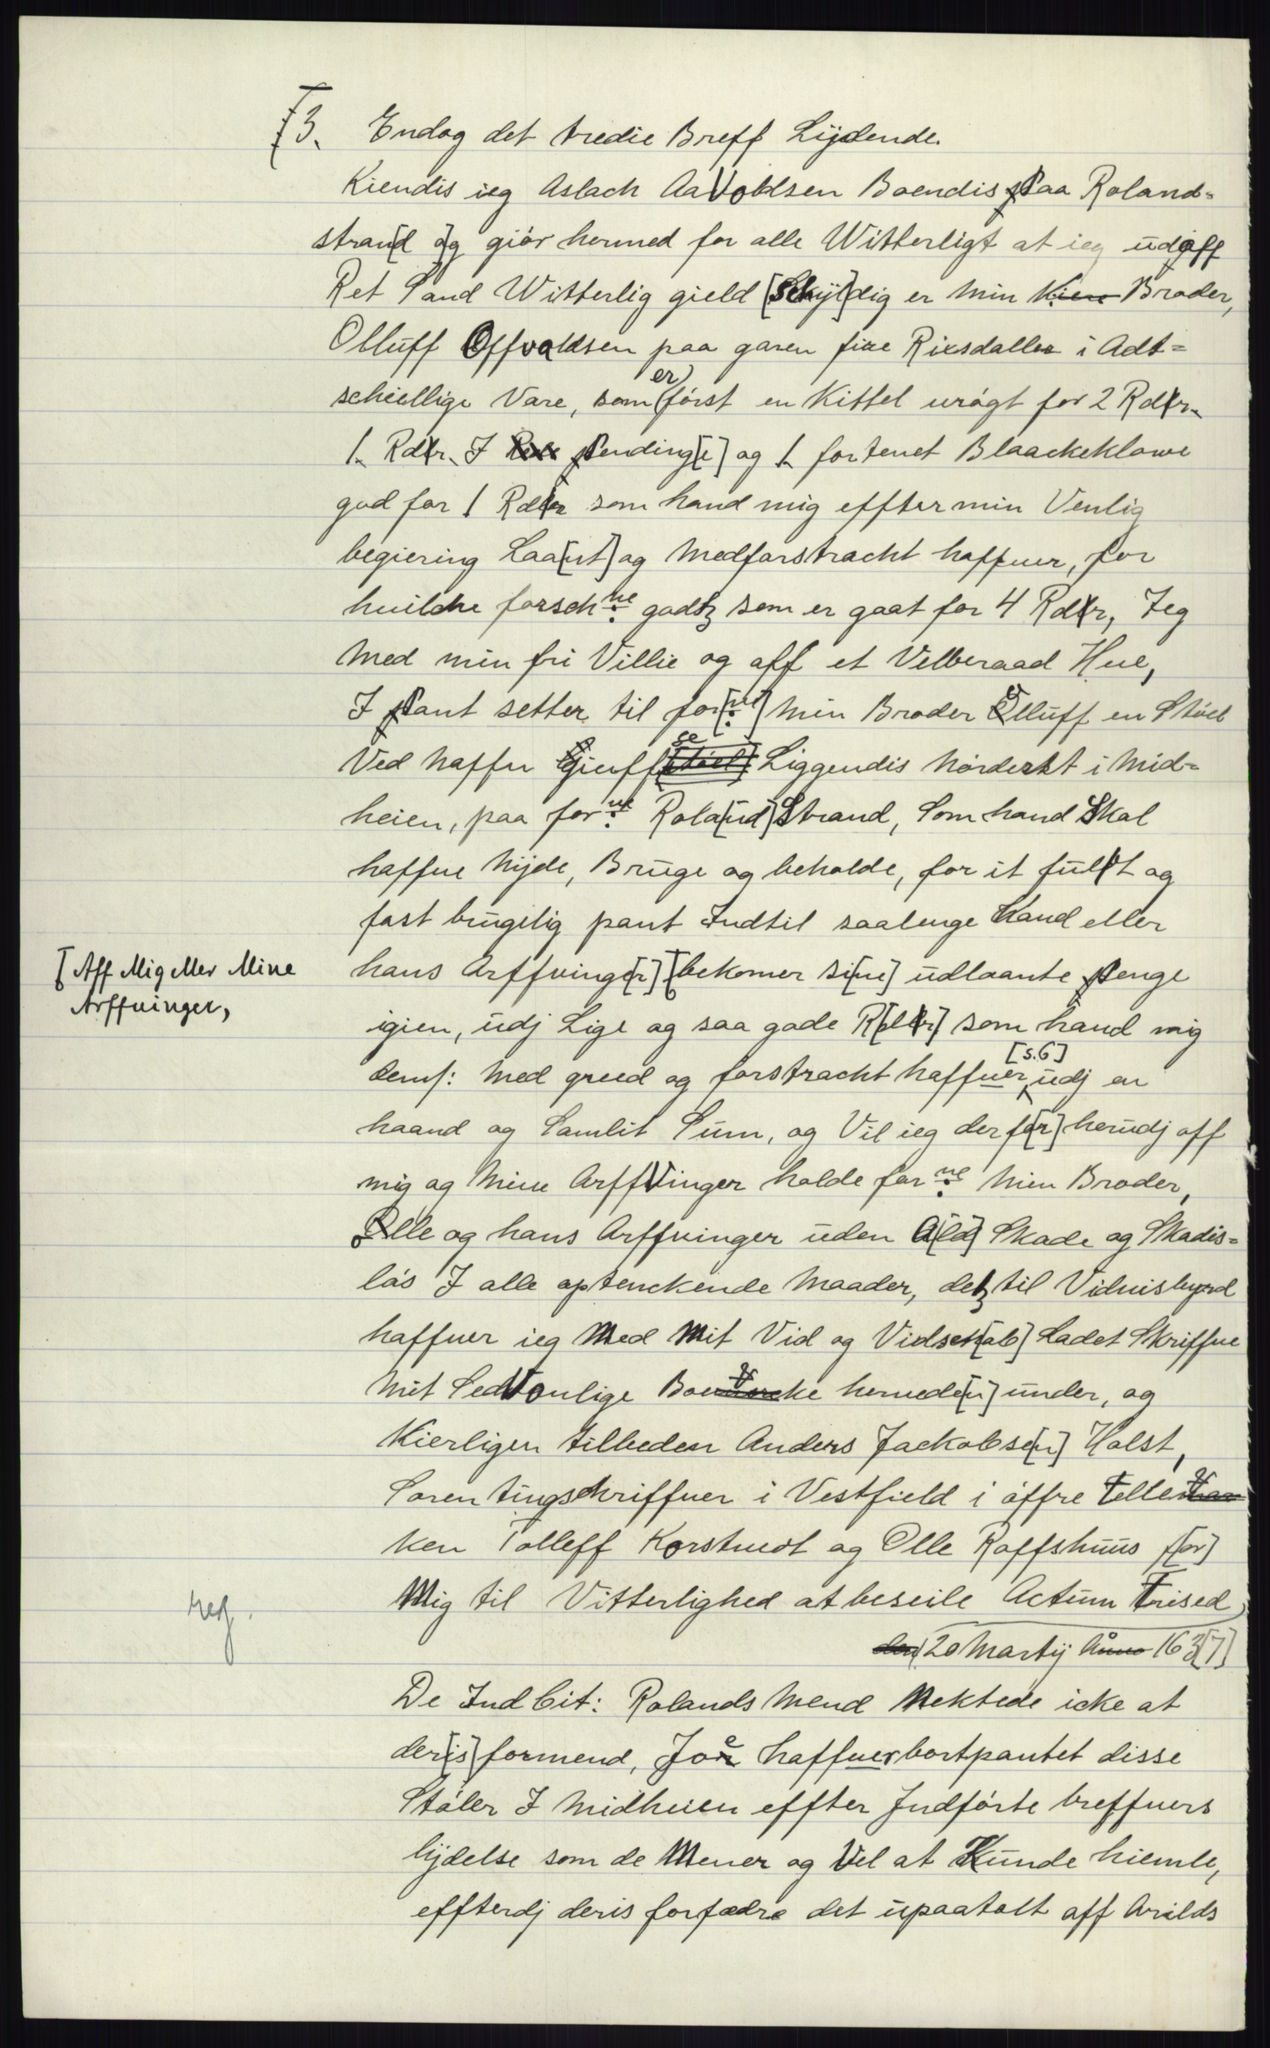 [3. Endog det tredie Breff Lijdende.
Kiendis ieg Aslach Aavoldsen Boendis Paa Roland-
stran[d o]g giör hermed for alle Witterligt at ieg udj aff
Ret Sand Witterlig gield [Schyl]dig er min Kiere Broder,
Olluff Offvoldsen paa garen fire Rixsdaller i Adt-
schiellige Vare, som (er) först en Kittel urögt for 2 Rdlr.
1 Rdlr. I Pending[e] og 1 fortenet Blaackeklowe
god for 1 Rdlr som hand mig effter min Venlig
begiering Laa[nt] og Medforstracht haffuer, for
huilche forschne godtz som er gaat for 4 Rdlr, Jeg
Med min fri Villie og aff et Velberaad Hue,
I Pant setter til for[ne] Min Broder Olluff en Stöel
Ved Naffn Gieuffse Liggendis Nörderst i Mid-
heien, paa forne Rola[nd] Strand, Som hand Skal
haffue Nijde, Bruge og beholde, for it fult og
fast brugelig pant Indtil saalenge Hand eller
[Aff Mig eller Mine
Arffuinger,
hans Arffvinge[r] [bekomer si[ne] udlaante Penge
igien, udj Lige og saa gode R[dlr] som hand mig
[s.6]
demf: Med greed og forstracht haffuer udj en
haand og Samlit Sum, og Vil ieg derf[or] herudj aff
mig og Mine Arffvinger holde forne Min Broder,
Olle og hans Arffuinger uden A[ld] Skade og Skadis-
lös I alle optenckende Maader, detz til Vidnisbyrd
haffuer ieg Med Mit Vid og Vidsch[ab] Ladet Skriffue
Mit Sedvonlige Boemercke hernede[n] under, og
Kierligen tilbeden Anders Jackobse[n] Holst,
Soren tingschriffuer i Vestfield i öffre Tellemar
ken Tolleff Korstuedt og Olle Roffshuus f[or]
Mig til Vitterlighed at beseile Actum Trised
den 20 Martij Anno 163[7]
reg.
De Ind Cit: Rolands Mend Nektede icke at
der[is] formend, Joe haffuer bortpantet disse
Stöler I Midheien effter Indförte breffuers
lijdelse som de Mener og Vel at Kunde hiemle,
effterdj deris forfædre det upaatalt aff Arilds